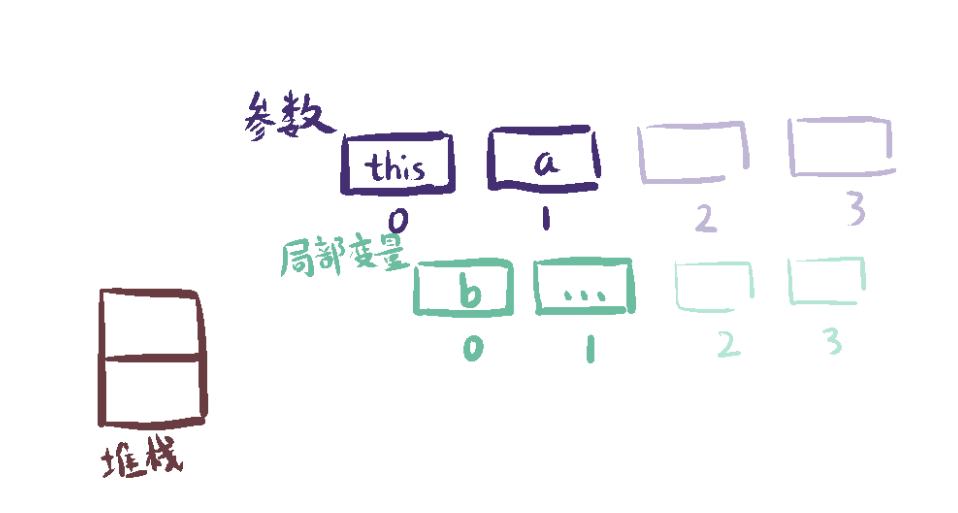 参数
this a
0 1 2 3
局部变量
b ...
0 1 2 3
堆栈